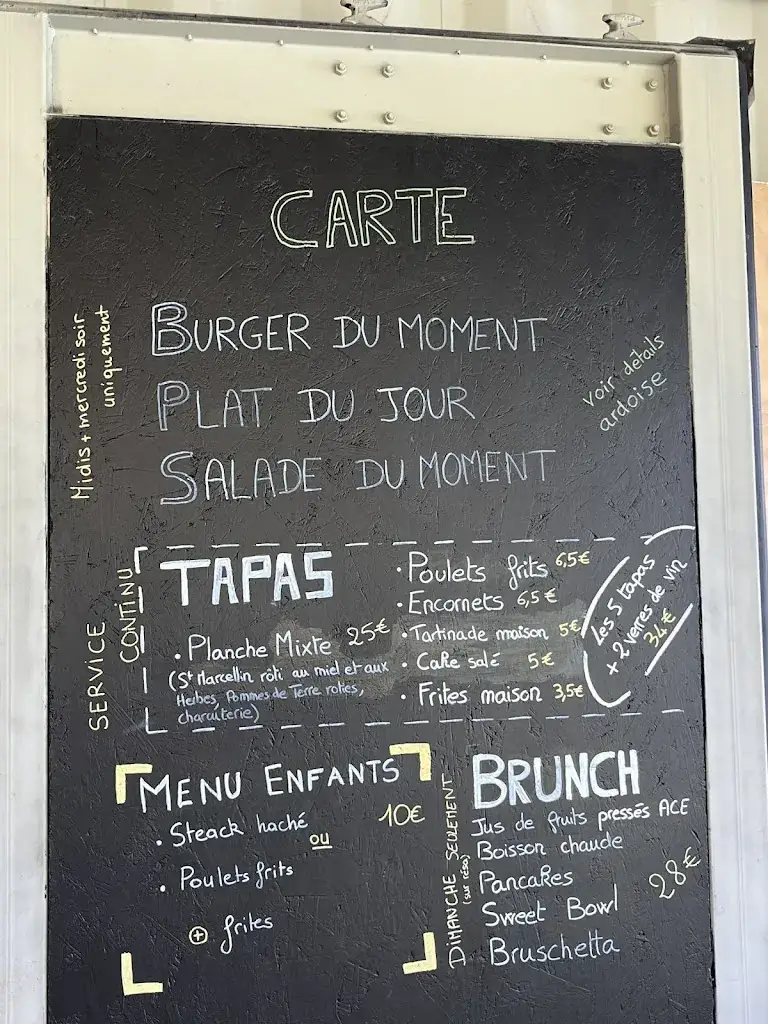 CARTE
Midis + mercredi soir
uniquement
BURGER DU MOMENT
PLAT DU JOUR
SALADE DU MOMENT
voir détails
ardoise
SERVICE
CONTINU
TAPAS
• Planche Mixte 25€
(St Marcellin rôti au miel et aux
Herbes, Pommes de Terre roties,
charcuterie)
• Poulets frits 6,5€
• Encornets 6,5€
• Tartinade maison 5€
• Cake salé 5€
• Frites maison 3,5€
Les 5 tapas
+ 2 verres de vin
34€
MENU ENFANTS
10€
• Steack haché
ou
• Poulets frits
+ frites
DIMANCHE SEULEMENT
(sur résa)
BRUNCH
Jus de fruits pressés ACE
Boisson chaude
Pancakes
28€
Sweet Bowl
Bruschetta